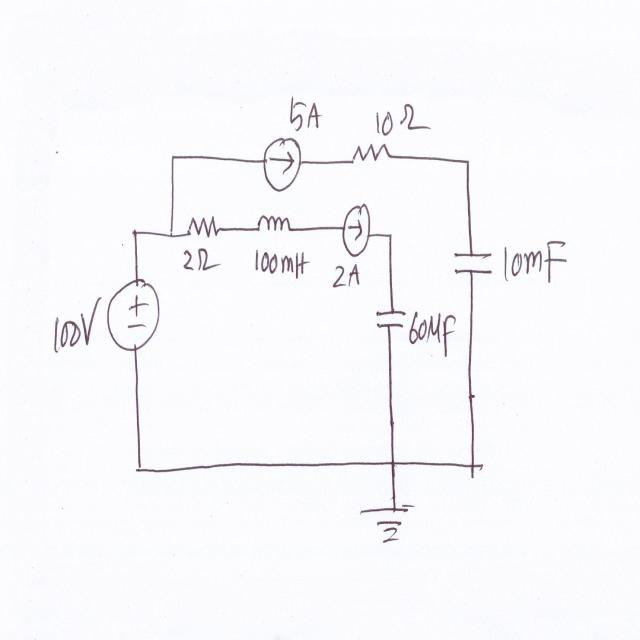 5A
10Ω
2Ω
100mH
2A
10mF
100V
+
−
60MF